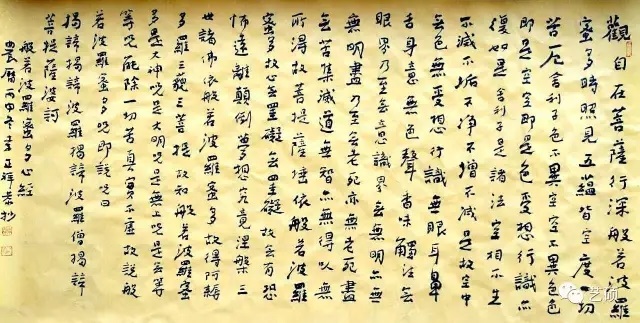 觀自在菩薩行深般若波羅
蜜多時照見五蘊皆空度一切
苦厄舍利子色不異空空不異色色
即是空空即是色受想行識亦
復如是舍利子是諸法空相不生
不滅不垢不淨不增不減是故空中
无色無受想行識無眼耳鼻
舌身意無色聲香味觸法无
眼界乃至无意識界无無明亦無
無明盡乃至无老死亦無老死盡
无苦集滅道無智亦無得以無
所得故菩提薩埵依般若波羅
蜜多故心无罣礙无罣礙故无有恐
怖遠離顛倒夢想究竟涅槃三
世諸佛依般若波羅蜜多故得阿耨
多羅三藐三菩提故知般若波羅蜜
多是大神咒是大明咒是无上咒是无等
等咒能除一切苦真實不虛故說般
若波羅蜜多咒即說咒曰
揭諦揭諦波羅揭諦波羅僧揭諦
菩提薩婆訶
般若波羅蜜多心經
農曆丙申冬 正祥 抄
艺硕